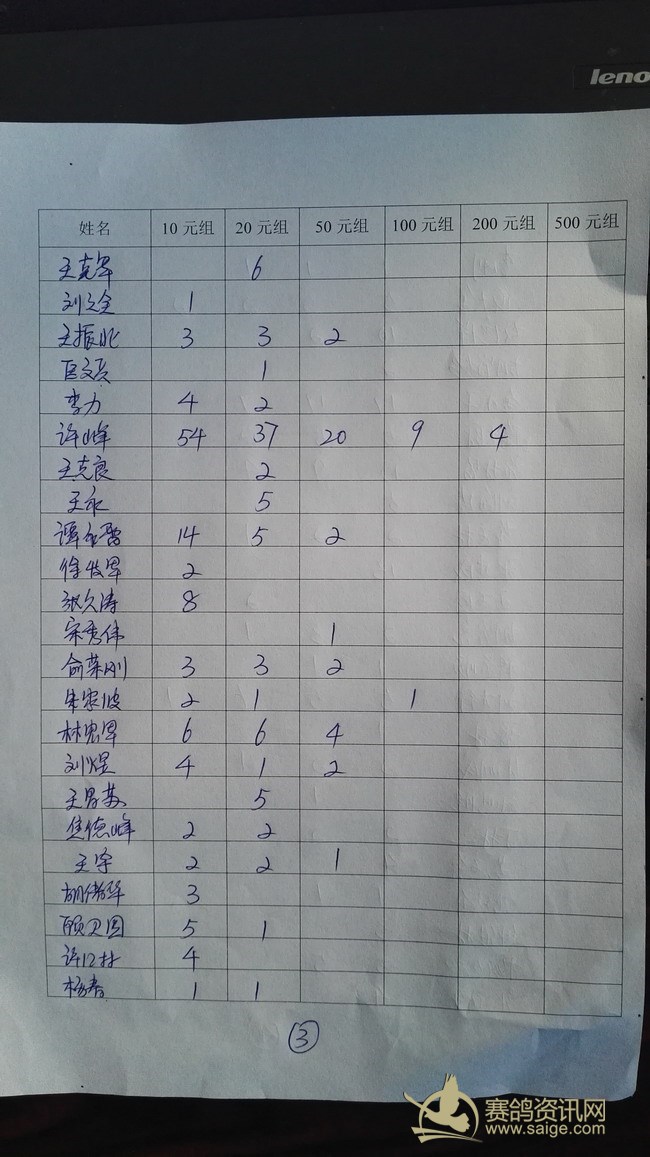 leno
姓名 10元组 20元组 50元组 100元组 200元组 500元组
王克军 6
刘文全 1
王振兆 3 3 2
1
李力 4 2
许峰 54 37 20 9 4
王克良 2
王永 5
谭永雷 14 5 2
徐牧军 2
张久涛 8
宋秀伟 1
俞荣刚 3 3 2
朱宏波 2 1 1
林忠军 6 6 4
刘煜 4 1 2
王昌荣 5
焦德峰 2 2
王宇 2 2 1
胡 3
顾卫国 5 1
许江林 4
杨春 1 1
③
赛鸽资讯网
www.saige.com